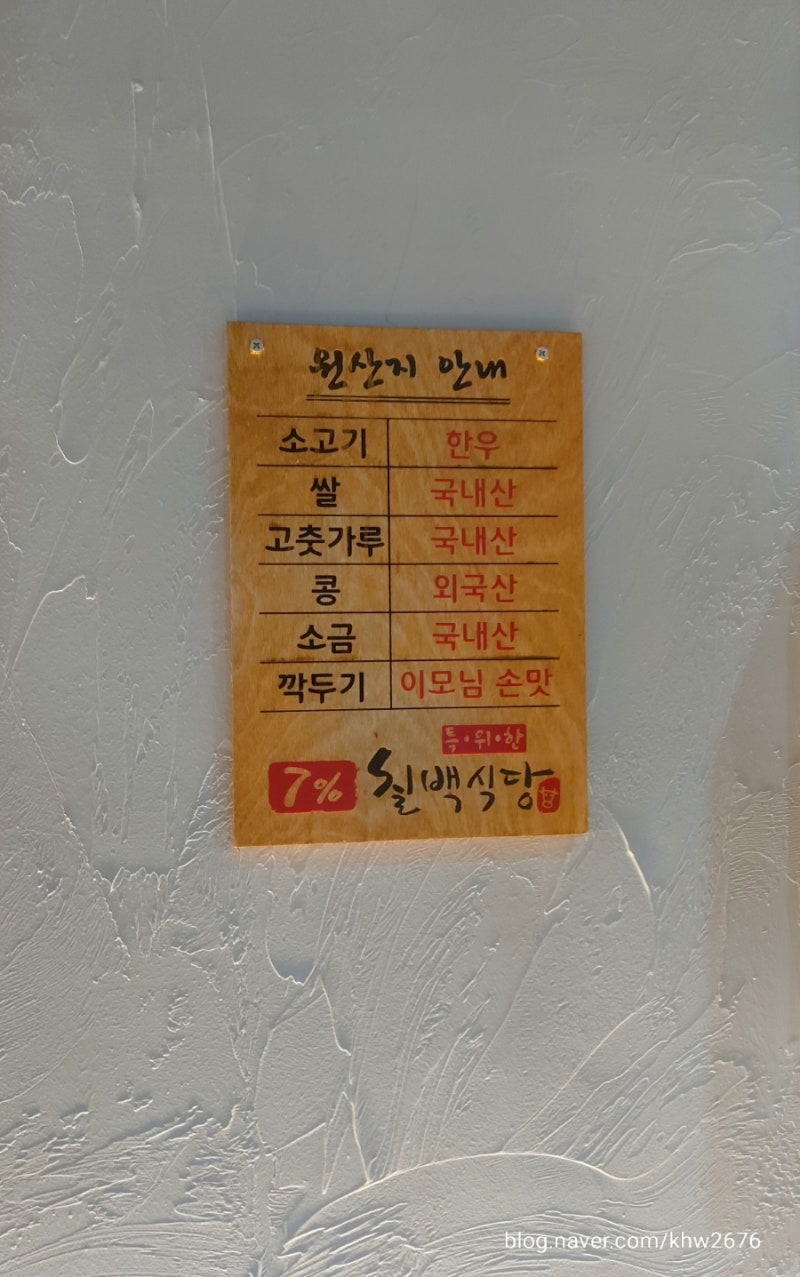 원산지 안내
소고기 한우
쌀 국내산
고춧가루 국내산
콩 외국산
소금 국내산
깍두기 이모님 손맛
특·위·한
7% 칠백식당
blog.naver.com/khw2676